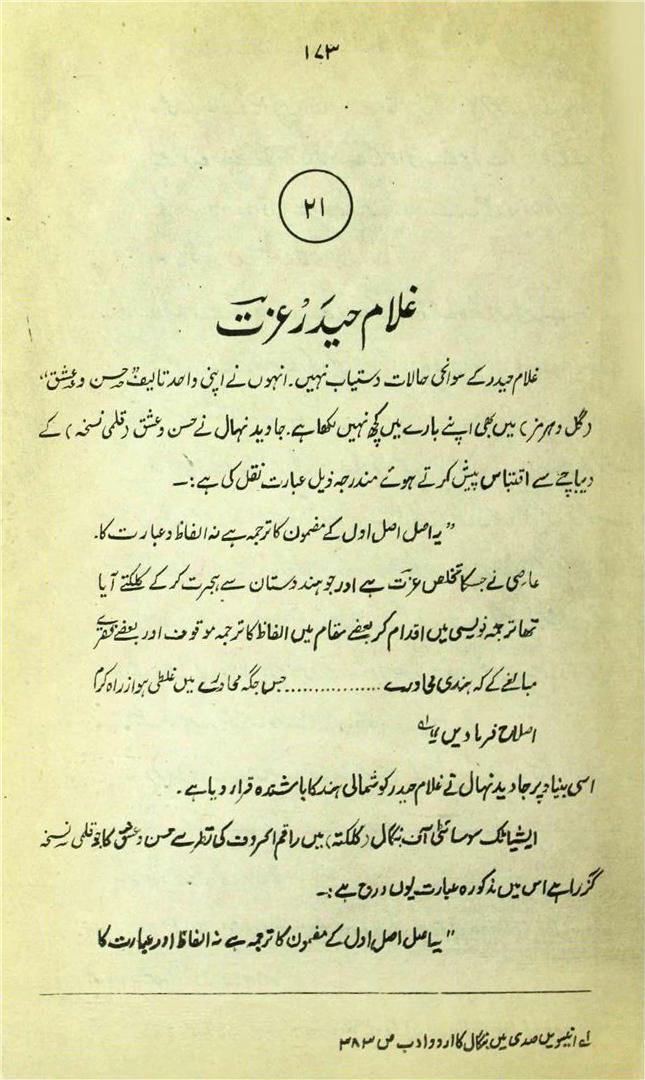 ۱۷۳
۲۱
غلام حیدر عزت
غلام حیدر کے سوانحی حالات دستیاب نہیں۔ انہوں نے اپنی واحد تالیف "حسن و عشق"
(گل و ہرمز) میں بھی اپنے بارے میں کچھ نہیں لکھا ہے۔ جاوید نہال نے حسن و عشق (قلمی نسخہ) کے
دیباچے سے اقتباس پیش کرتے ہوئے مندرجہ ذیل عبارت نقل کی ہے:۔
"یہ اصل اصل اول کے مضمون کا ترجمہ ہے نہ الفاظ و عبارت کا۔
عاصی نے جسکا تخلص عزت ہے اور جو ہندوستان سے ہجرت کر کے کلکتے آیا
تھا ترجمہ نویسی میں اقدام کر بعضے مقام میں الفاظ کا ترجمہ موقوف اور بعضے فقرے
مبالغے کے کہ ہندی محاورے ................ جس جگہ محاورے میں غلطی ہو از راہ کرم
اصلاح فرما دیں" ۱ے
اسی بنیاد پر جاوید نہال نے غلام حیدر کو شمالی ہند کا باشندہ قرار دیا ہے۔
ایشیاٹک سوسائٹی آف بنگال (کلکتہ) میں راقم الحروف کی نظر سے حسن و عشق کا جو قلمی نسخہ
گزرا ہے اس میں مذکورہ عبارت یوں درج ہے:۔
"یہ اصل اصل اول کے مضمون کا ترجمہ ہے نہ الفاظ اور عبارت کا
۱ے انیسویں صدی میں بنگال کا اردو ادب ص ۳۸۳